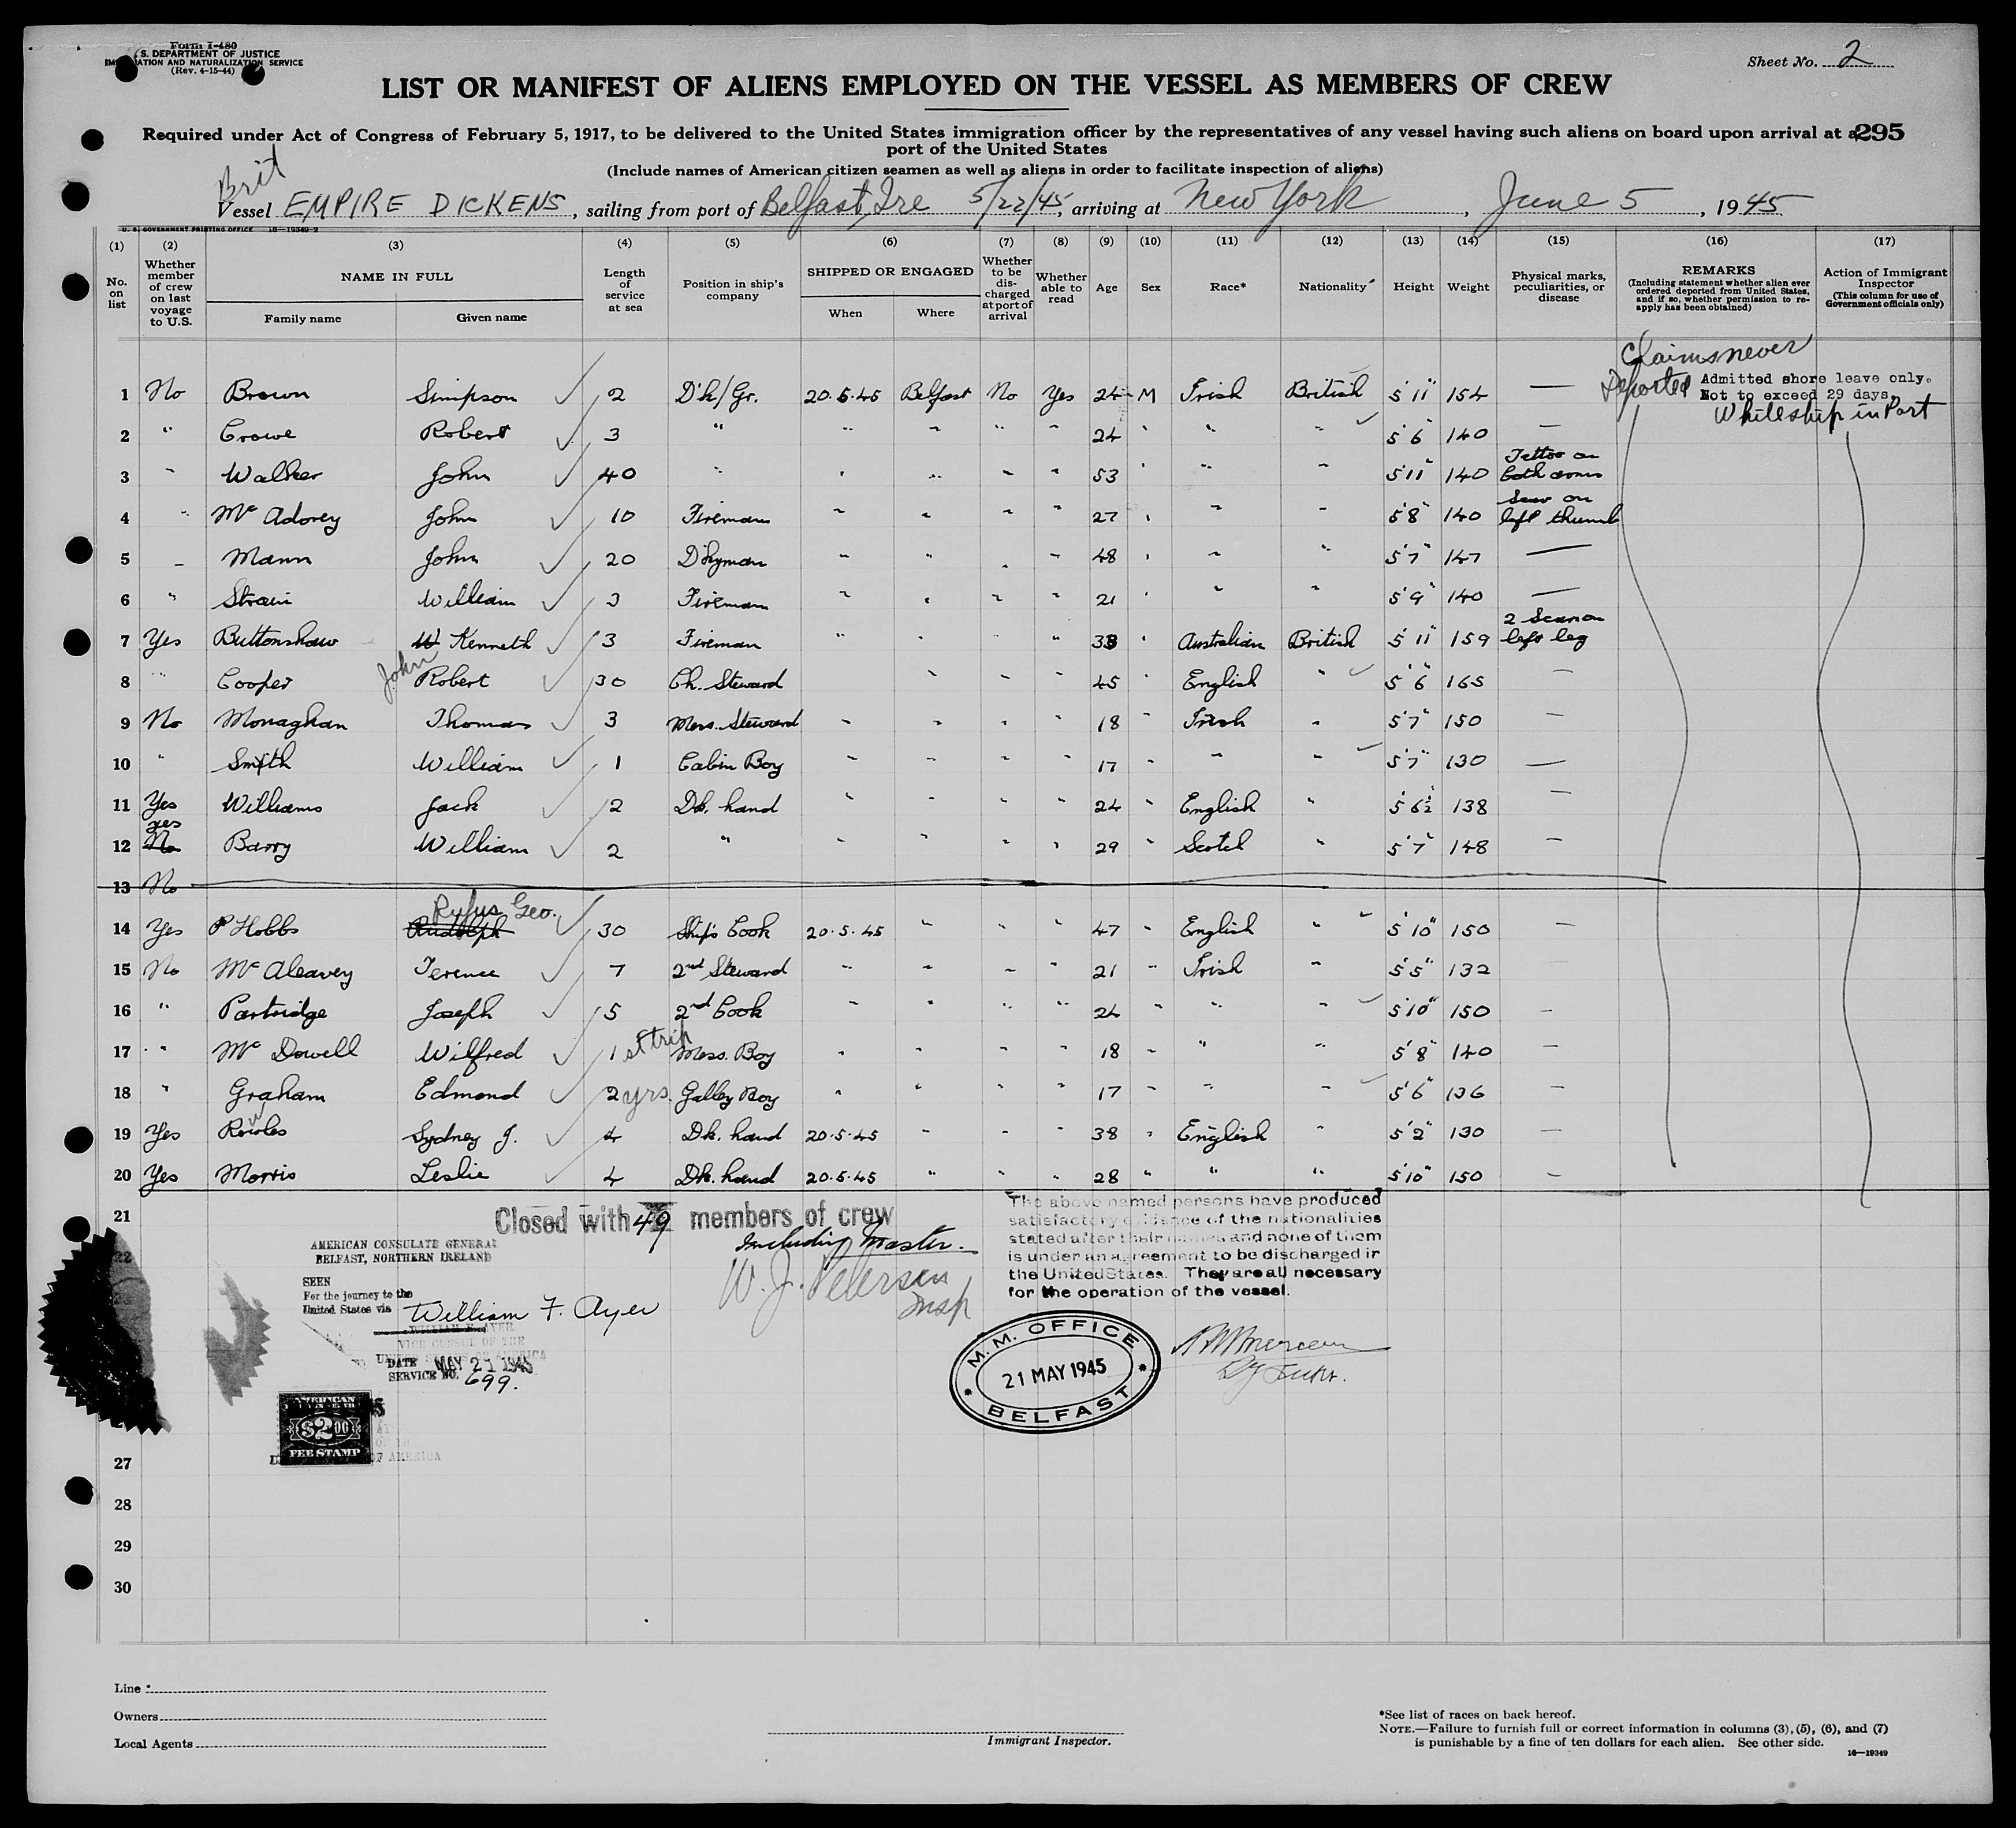 Form I-480
S. DEPARTMENT OF JUSTICE
IMMIGRATION AND NATURALIZATION SERVICE
(Rev. 4-15-44)
Sheet No. 2
LIST OR MANIFEST OF ALIENS EMPLOYED ON THE VESSEL AS MEMBERS OF CREW
Required under Act of Congress of February 5, 1917, to be delivered to the United States immigration officer by the representatives of any vessel having such aliens on board upon arrival at a 295
port of the United States
(Include names of American citizen seamen as well as aliens in order to facilitate inspection of aliens)
Brit
Vessel EMPIRE DICKENS, sailing from port of Belfast, Ire 5/22/45, arriving at New York, June 5, 1945
U. S. GOVERNMENT PRINTING OFFICE 16-19349-2
(1) (2) (3) (4) (5) (6) (7) (8) (9) (10) (11) (12) (13) (14) (15) (16) (17)
No. on list
Whether member of crew on last voyage to U.S.
NAME IN FULL
Family name Given name
Length of service at sea
Position in ship's company
SHIPPED OR ENGAGED
When Where
Whether to be discharged at port of arrival
Whether able to read
Age
Sex
Race*
Nationality
Height
Weight
Physical marks, peculiarities, or disease
REMARKS
(Including statement whether alien ever ordered deported from United States, and if so, whether permission to reapply has been obtained)
Action of Immigrant Inspector
(This column for use of Government officials only)
Claims never
Deported Admitted shore leave only.
Not to exceed 29 days.
While ship in Port
1 No Brown Simpson 2 D'k/Gr. 20.5.45 Belfast No Yes 24 M Irish British 5'11" 154 —
2 " Crowe Robert 3 " " " " " 24 " " " 5'6" 140 —
3 " Walker John 40 " " " " " 53 " " " 5'11" 140 Tattoo on both arms
4 " McAdorey John 10 Fireman " " " " 27 " " " 5'8" 140 Scar on left thumb
5 " Mann John 20 D'kyman " " " " 48 " " " 5'7" 147 —
6 " Strain William 3 Fireman " " " " 21 " " " 5'9" 140 —
7 Yes Buttonshaw W Kenneth 3 Fireman " " " " 33 " Australian British 5'11" 159 2 Scar on left leg
8 " Cooper John Robert 30 Ch. Steward " " " 45 " English " 5'6" 165 —
9 No Monaghan Thomas 3 Mess. Steward " " " " 18 " Irish " 5'7" 150 —
10 " Smith William 1 Cabin Boy " " " " 17 " " " 5'7" 130 —
11 Yes Williams Jack 2 Dk. hand " " " " 24 " English " 5'6½ 138 —
12 yes No Barry William 2 " " " " " 29 " Scotch " 5'7" 148 —
13 No
14 Yes P Hobbs Rudolph Rufus Geo. 30 Ship's Cook 20.5.45 " " " 47 " English " 5'10" 150 —
15 No McAleavey Terence 7 2nd Steward " " " " 21 " Irish " 5'5" 132
16 " Partridge Joseph 5 2nd Cook " " " " 24 " " " 5'10" 150 —
17 " McDowell Wilfred 1st trip Mess. Boy " " " " 18 " " " 5'8" 140 —
18 " Graham Edmond 2 yrs. Galley Boy " " " " 17 " " " 5'6" 136 —
19 Yes Rowles Sydney J. 4 Dk. hand 20.5.45 " " " 38 " English " 5'2" 130 —
20 Yes Morris Leslie 4 Dk. hand 20.5.45 " " " 28 " " " 5'10" 150 —
21
22
Closed with 49 members of crew
Including Master.
W. J. Petersen
Insp
The above named persons have produced
satisfactory evidence of the nationalities
stated after their names and none of them
is under an agreement to be discharged in
the United States. They are all necessary
for the operation of the vessel.
AMERICAN CONSULATE GENERAL
BELFAST, NORTHERN IRELAND
SEEN
For the journey to the
United States via
William F. Ayer
WILLIAM F. AYER
VICE CONSUL OF THE
UNITED STATES OF AMERICA
DATE MAY 21 1945
SERVICE NO. 699.
AMERICAN
$2.00
FEE STAMP
OF AMERICA
M. M. OFFICE
21 MAY 1945
BELFAST
27
28
29
30
Line
Owners
Local Agents
Immigrant Inspector.
*See list of races on back hereof.
NOTE.—Failure to furnish full or correct information in columns (3), (5), (6), and (7)
is punishable by a fine of ten dollars for each alien. See other side.
16—19349